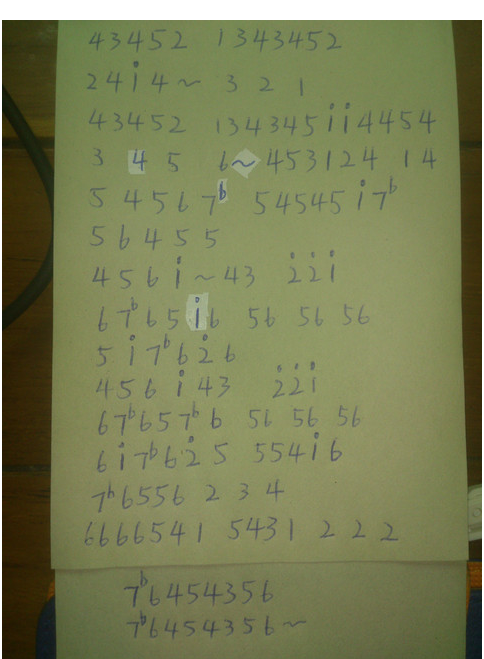 43452 1343452
24i4~ 3 2 1
43452 134345ii4454
3 4 5 6~453124 14
5 4567ᵇ 54545i7ᵇ
56455
456i~43 2̇2̇i
67ᵇ65i6 56 56 56
5i7ᵇ62̇6
456i43 2̇2̇i
67ᵇ657ᵇ6 56 56 56
6i7ᵇ62̇5 554i6
7ᵇ6556 2 3 4
6666541 5431 2 2 2
7ᵇ6454356
7ᵇ6454356~